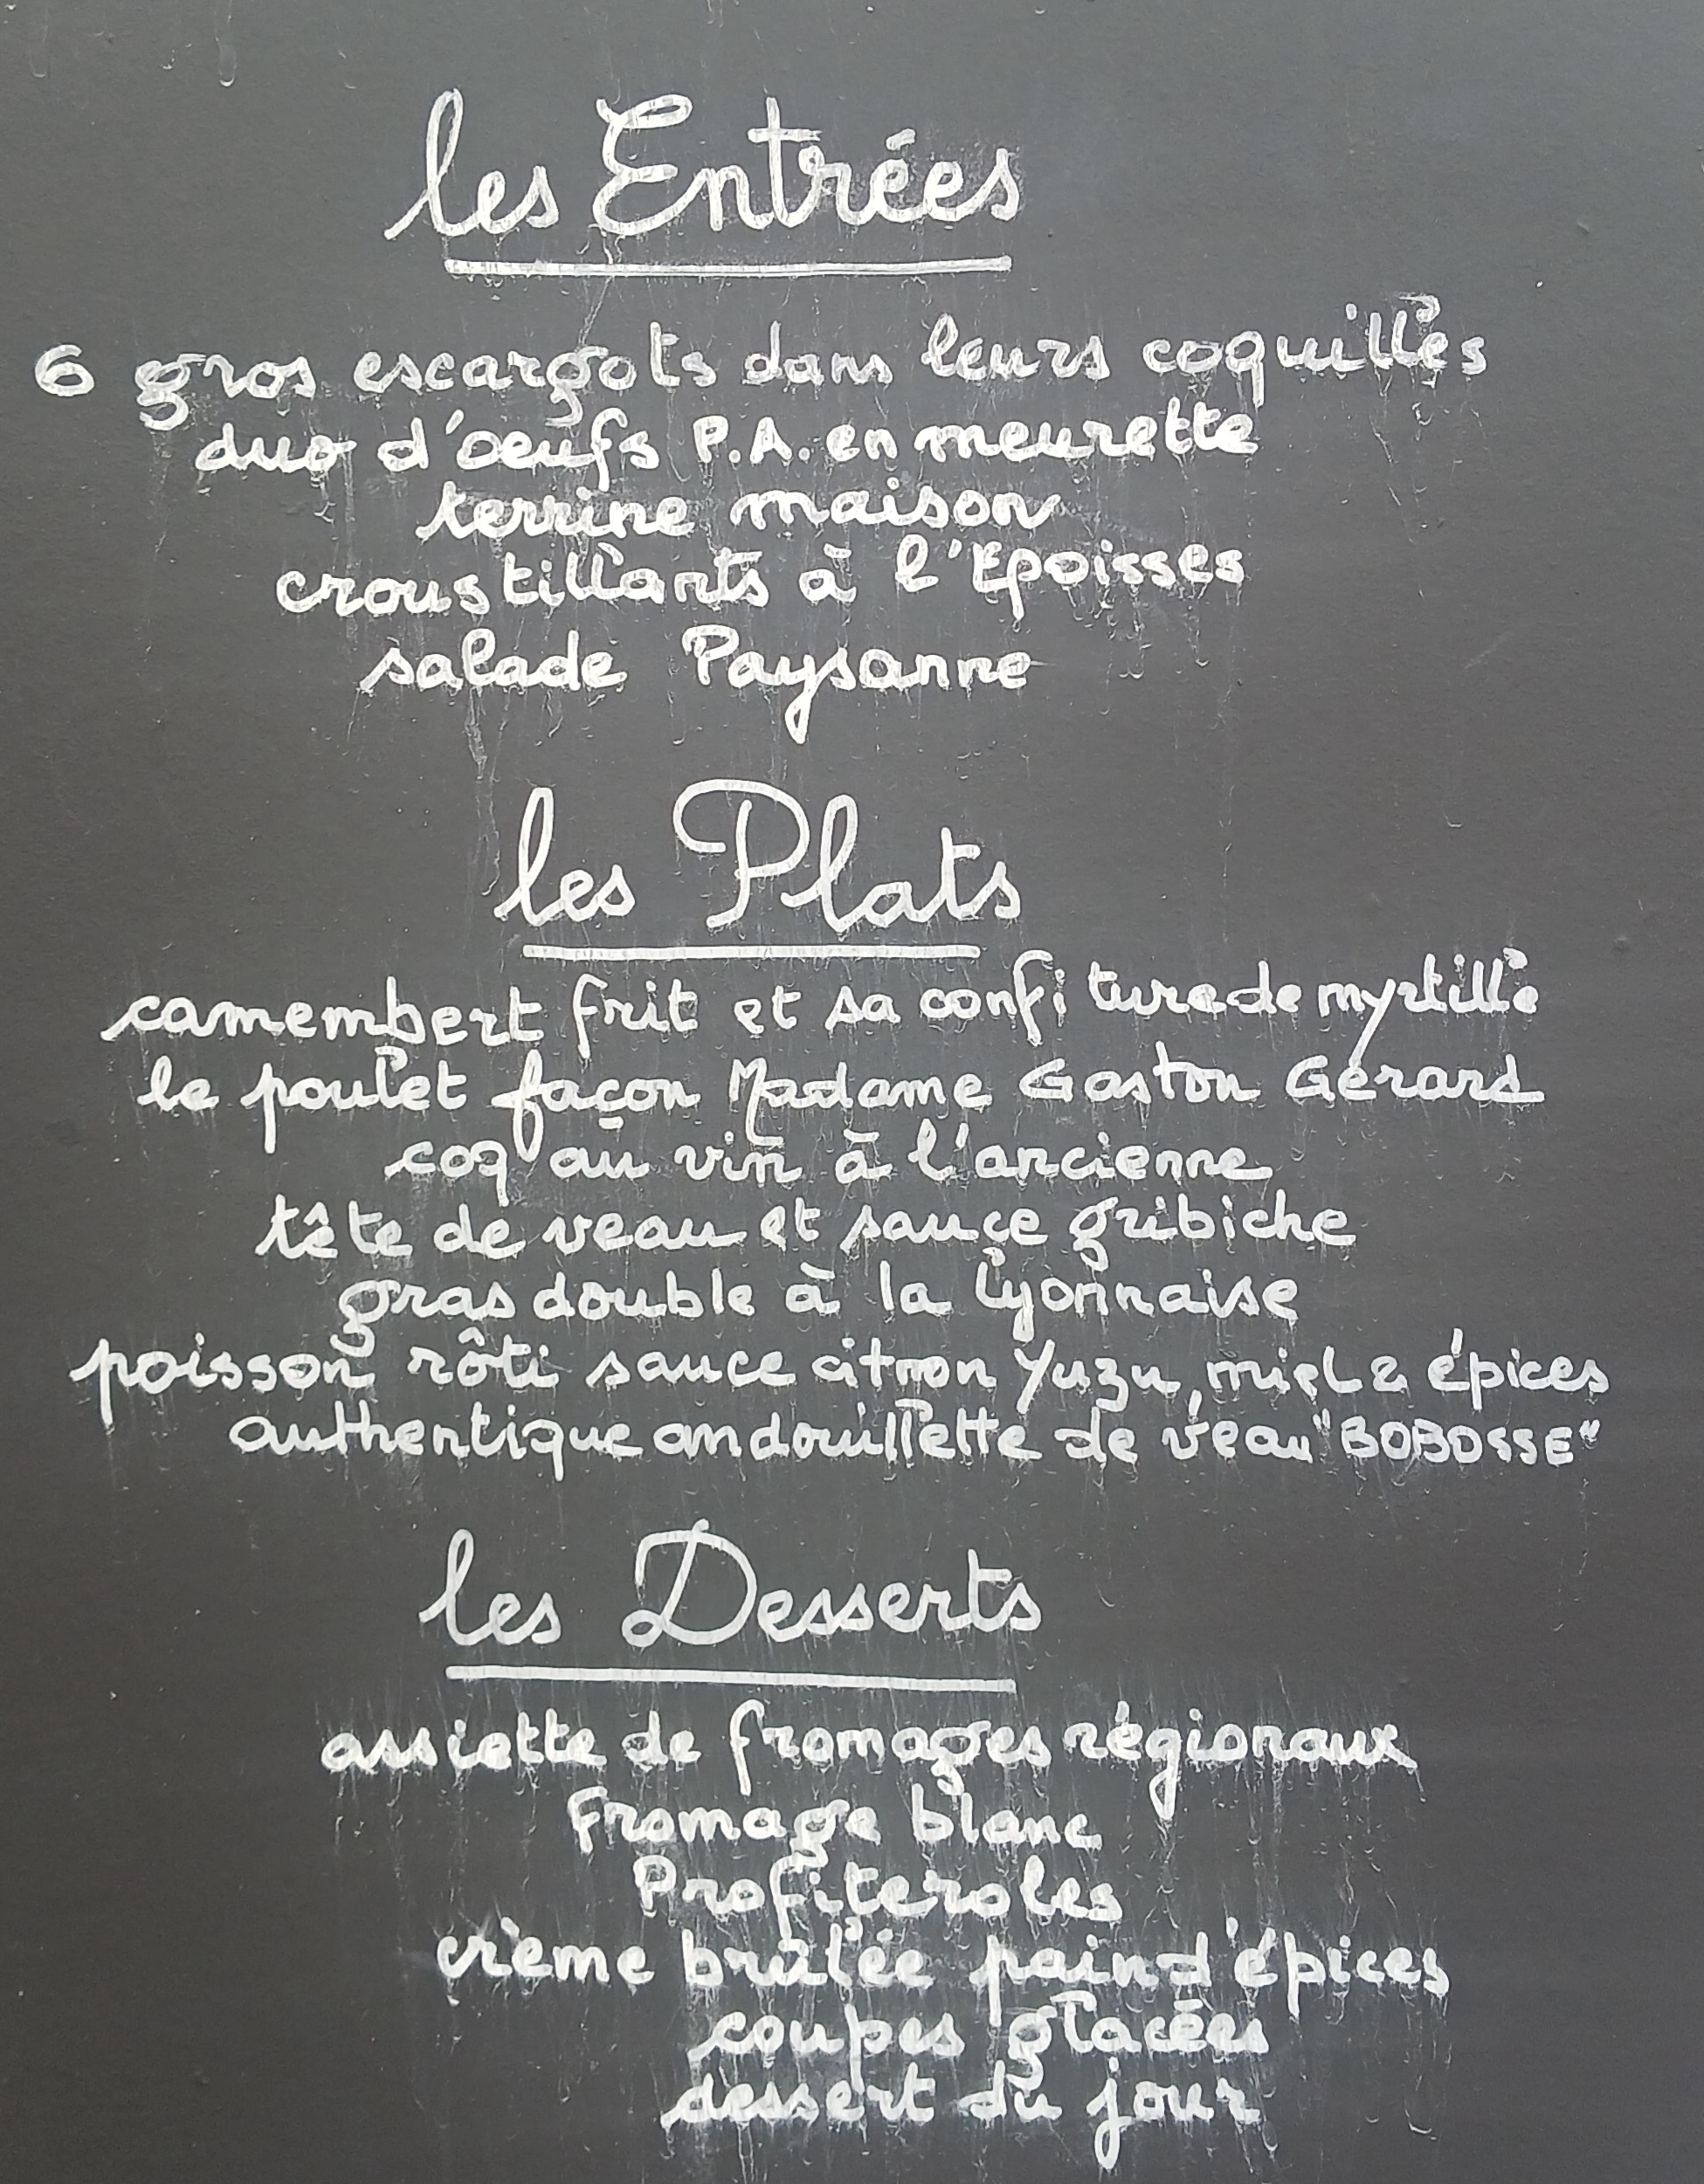 les Entrées
6 gros escargots dans leurs coquilles
duo d'oeufs P.A. en meurette
terrine maison
croustillants à l'Epoisses
salade Paysanne
les Plats
camembert frit et sa confiture de myrtille
le poulet façon Madame Gaston Gérard
coq au vin à l'ancienne
tête de veau et sauce gribiche
gras double à la Lyonnaise
poisson rôti sauce citron Yuzu, miel & épices
authentique andouillette de veau "BOBOSSE"
les Desserts
assiette de fromages régionaux
Fromage blanc
Profiteroles
crème brûlée pain d'épices
coupes glacées
dessert du jour